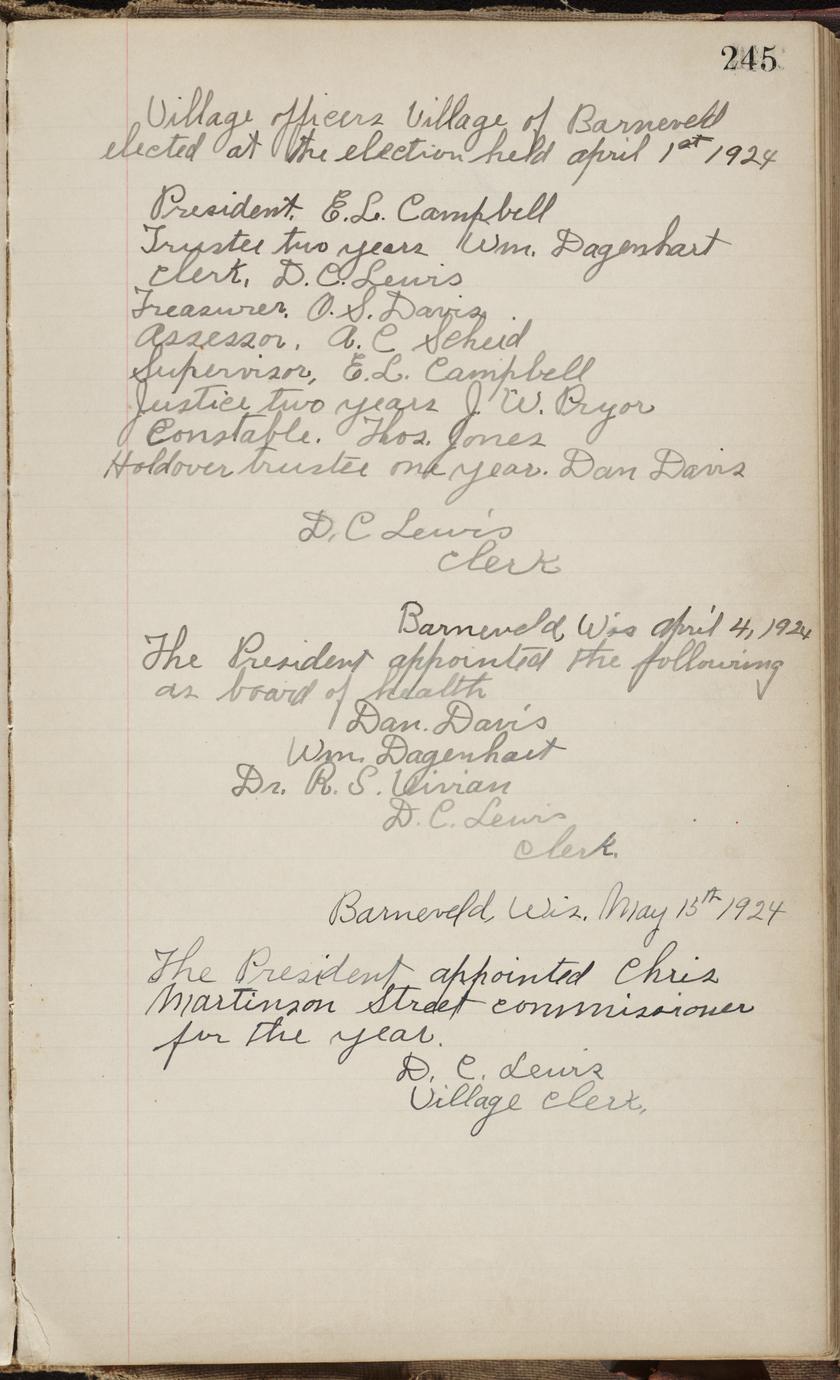 245
Village officers Village of Barneveld
elected at the election held april 1st 1924
President. E.L. Campbell
Trustee two years Wm. Dagenhart
Clerk, D.C. Lewis
Treasurer. O.S. Davis
Assessor, A.C Scheid
Supervisor, E.L. Campbell
Justice two years J.W. Pryor
Constable. Thos. Jones
Holdover trustee one year. Dan Davis
D.C Lewis
Clerk
Barneveld, Wis april 4, 1924
The President appointed the following
as board of health
Dan. Davis
Wm. Dagenhart
Dr. R.S. Vivian
D.C. Lewis
Clerk.
Barneveld, Wis. May 15th 1924
The President appointed Chris
Martinson Street commissioner
for the year.
D. C. Lewis
Village Clerk.